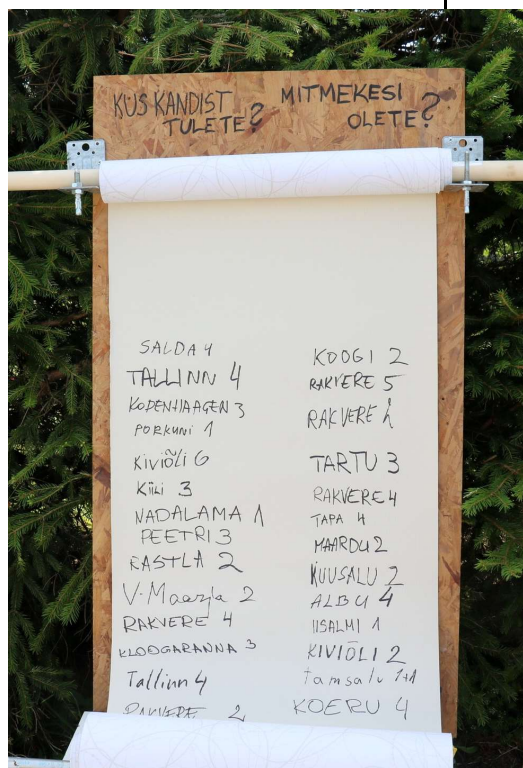 KUS KANDIST
TULETE?
MITMEKESI
OLETE?
SALDA 4
TALLINN 4
KOPENHAAGEN 3
PORKUNI 1
KIVIÕLI 6
Kiili 3
NADALAMA 1
PEETRI 3
RASTLA 2
V-Maarja 2
RAKVERE 4
KLOOGARANNA 3
Tallinn 4
RAKVERE 2
KOOGI 2
RAKVERE 5
RAKVERE
TARTU 3
RAKVERE 4
TAPA 4
MAARDU 2
KUUSALU 2
ALBU 4
IISALMI 1
KIVIÕLI 2
tamsalu 1+1
KOERU 4